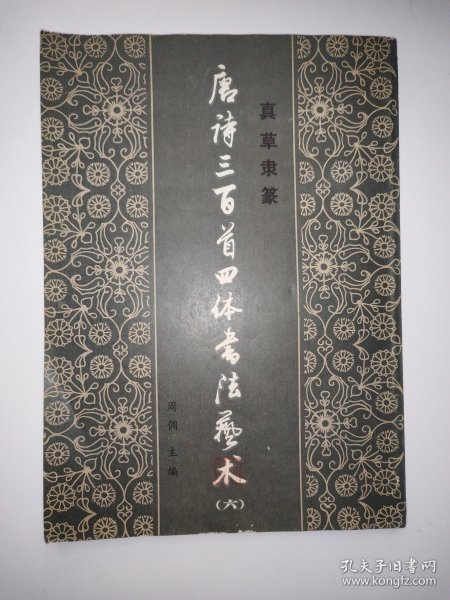 真草隶篆
唐诗三百首四体书法艺术
(六)
周倜 主编
孔夫子旧书网
www.kongfz.com